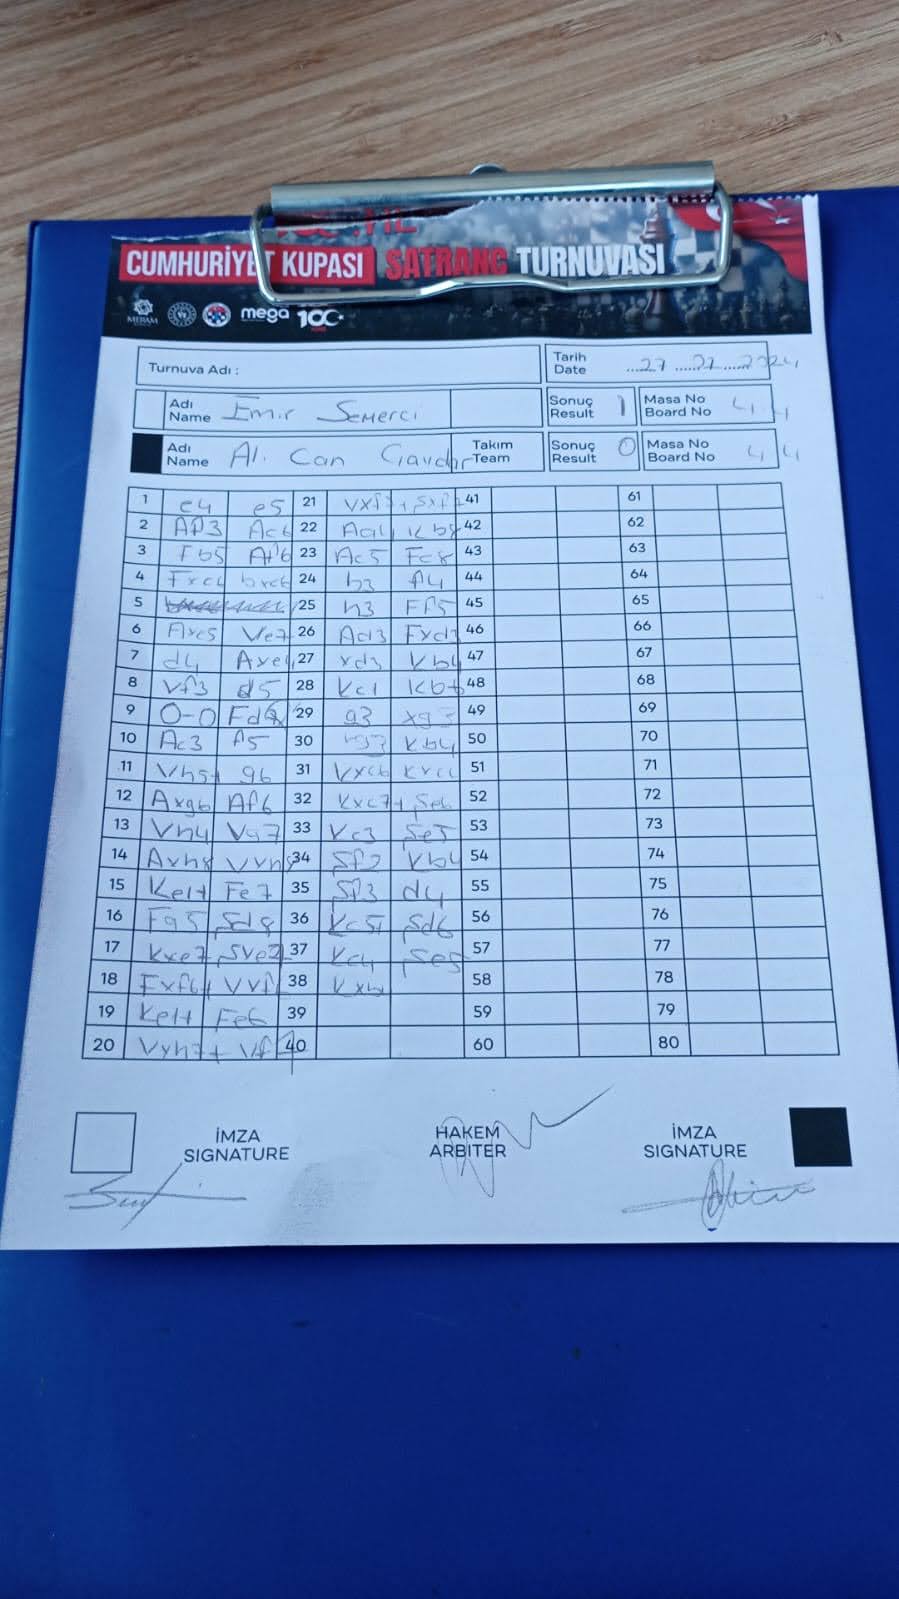 CUMHURİYET KUPASI SATRANÇ TURNUVASI
MERAM mega 100
Turnuva Adı :
Tarih
Date 27
Adı
Name Emir Semerci
Sonuç
Result 1
Masa No
Board No 44
Adı
Name Ali Can
Takım
Team
Sonuç
Result 0
Masa No
Board No 44
1 e4 e5 21 41 61
2 Af3 Ac6 22 Aa4 Kb8 42 62
3 Fb5 Af6 23 Ac5 Fc8 43 63
4 Fxc6 bxc6 24 b3 f4 44 64
5 25 h3 Ff5 45 65
6 Axe5 Ve7 26 Ad3 Fxd3 46 66
7 d4 Axe4 27 xd3 Kb4 47 67
8 Vf3 d5 28 Kc1 Kb6 48 68
9 O-O 29 g3 xg3 49 69
10 Ac3 f5 30 Kb4 50 70
11 Vh5+ g6 31 Kxc6 51 71
12 Axg6 Af6 32 Kxc7+ Şe6 52 72
13 Vh4 Vg7 33 Kc3 Şe5 53 73
14 Axh8 Vxh8 34 Şf2 Kb4 54 74
15 Ke1+ Fe7 35 Şf3 d4 55 75
16 Fg5 Şd8 36 Kc5+ Şd6 56 76
17 Kxe7 Şxe7 37 Kc4 Şe5 57 77
18 Fxf6+ Vxf6 38 58 78
19 Ke1+ Fe6 39 59 79
20 Vxh7+ Vf7 40 60 80
İMZA
SIGNATURE
HAKEM
ARBITER
İMZA
SIGNATURE